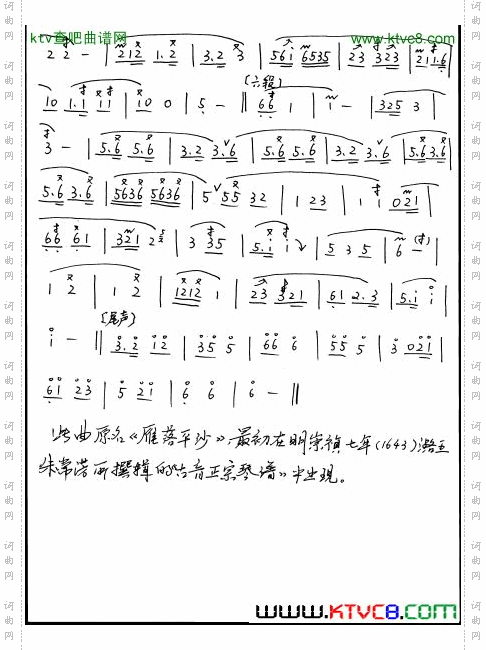 ktv查吧曲谱网 www.ktvc8.com
2 2 - | 212 1.2 | 3.2 3 | 561 6535 | 23 323 | 211.6 |
(六段)
10 1.1 11 | 10 0 | 5 - || 66 1 | 1 - | 325 3 |
3 - | 5.6 5.6 | 3.2 3.6 | 5.6 5.6 | 3.2 3.6 | 5.6 3.6 |
5.6 3.6 | 5636 5636 | 5 55 32 | 1 23 | 1 1 021 |
66 61 | 321 2 | 3 35 | 5.1 1 | 5 3 5 | 6 - |
1 2 | 1 2 | 1212 1 | 23 321 | 61 2.3 | 5.1 1 |
(尾声)
1 - || 3.2 12 | 35 5 | 66 6 | 55 5 | 3 021 |
61 23 | 5 21 | 6 6 | 6 - ||
此曲原名《雁落平沙》最初在明崇祯七年(1643)潞王
朱常淓所撰辑的《古音正宗琴谱》中出现。
www.KTVC8.com
词曲网
词曲网
词曲网
词曲网
词曲网
词曲网
词曲网
词曲网
词曲网
词曲网
词曲网
词曲网